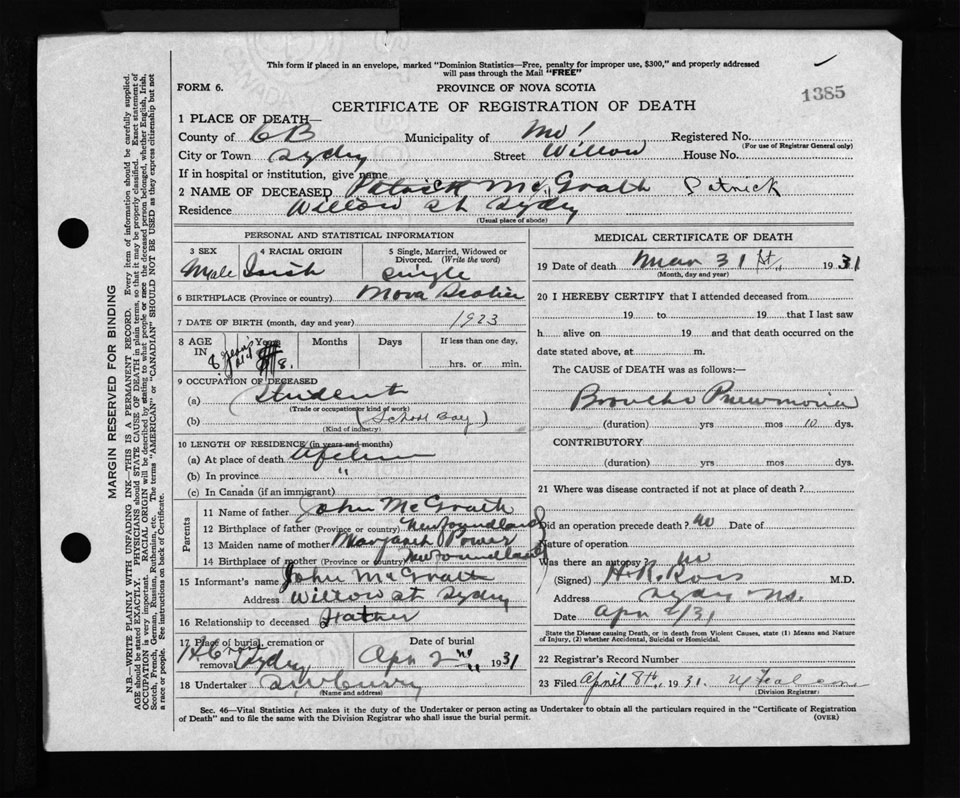 This form if placed in an envelope, marked "Dominion Statistics—Free, penalty for improper use, $300," and properly addressed
will pass through the Mail "FREE"
1385
FORM 6.
PROVINCE OF NOVA SCOTIA
CERTIFICATE OF REGISTRATION OF DEATH
1 PLACE OF DEATH—
County of CB Municipality of Registered No.
(For use of Registrar General only)
City or Town Sydny Street Willow House No.
If in hospital or institution, give name
2 NAME OF DECEASED Patrick McGrath Patrick
Residence Willow St Sydny
(Usual place of abode)
PERSONAL AND STATISTICAL INFORMATION
3 SEX 4 RACIAL ORIGIN 5 Single, Married, Widowed or Divorced. (Write the word)
Male Irish single
6 BIRTHPLACE (Province or country) Nova Scotia
7 DATE OF BIRTH (month, day and year) 1923
8 AGE IN Years Months Days If less than one day,
8 years old 8. hrs. or min.
9 OCCUPATION OF DECEASED
(a) Student
(Trade or occupation or kind of work)
(b) (School Boy)
(Kind of industry)
10 LENGTH OF RESIDENCE (in years and months)
(a) At place of death
(b) In province "
(c) In Canada (if an immigrant)
Parents
11 Name of father John McGrath
12 Birthplace of father (Province or country) Newfoundland
13 Maiden name of mother Margaret Power
14 Birthplace of mother (Province or country) Newfoundland
15 Informant's name John McGrath
Address Willow St Sydny
16 Relationship to deceased Father
17 Place of burial, cremation or removal Date of burial
Sydny Apr 2nd 1931
18 Undertaker
(Name and address)
MEDICAL CERTIFICATE OF DEATH
19 Date of death Mar 31st, 1931
(Month, day and year)
20 I HEREBY CERTIFY that I attended deceased from
19 to 19 that I last saw
h alive on 19 and that death occurred on
date stated above, at m.
The CAUSE of DEATH was as follows:—
Broncho Pneumonia
(duration) yrs mos 10 dys.
CONTRIBUTORY
(duration) yrs. mos. dys.
21 Where was disease contracted if not at place of death?
Did an operation precede death? no Date of
Nature of operation
Was there an autopsy? no
(Signed) H.K. Ross M.D.
Address Sydny N.S.
Date Apr 2/31
State the Disease causing Death, or in death from Violent Causes, state (1) Means and Nature
of Injury, (2) whether Accidental, Suicidal or Homicidal.
22 Registrar's Record Number
23 Filed April 8th, 1931.
(Division Registrar)
Sec. 46—Vital Statistics Act makes it the duty of the Undertaker or person acting as Undertaker to obtain all the particulars required in the "Certificate of Registration
of Death" and to file the same with the Division Registrar who shall issue the burial permit.
(OVER)
MARGIN RESERVED FOR BINDING
N.B.—WRITE PLAINLY WITH UNFADING INK—THIS IS A PERMANENT RECORD. Every item of information should be carefully supplied.
AGE should be stated EXACTLY. PHYSICIANS should STATE CAUSE OF DEATH in plain terms, so that it may be properly classified. Exact statement of
OCCUPATION is very important. RACIAL ORIGIN will be described by stating to what people or race the deceased person belonged, whether English, Irish,
Scotch, French, German, Russian, Ruthenian, etc. The terms "AMERICAN" or "CANADIAN" SHOULD NOT BE USED as they express citizenship but not
a race or people. See instructions on back of Certificate.